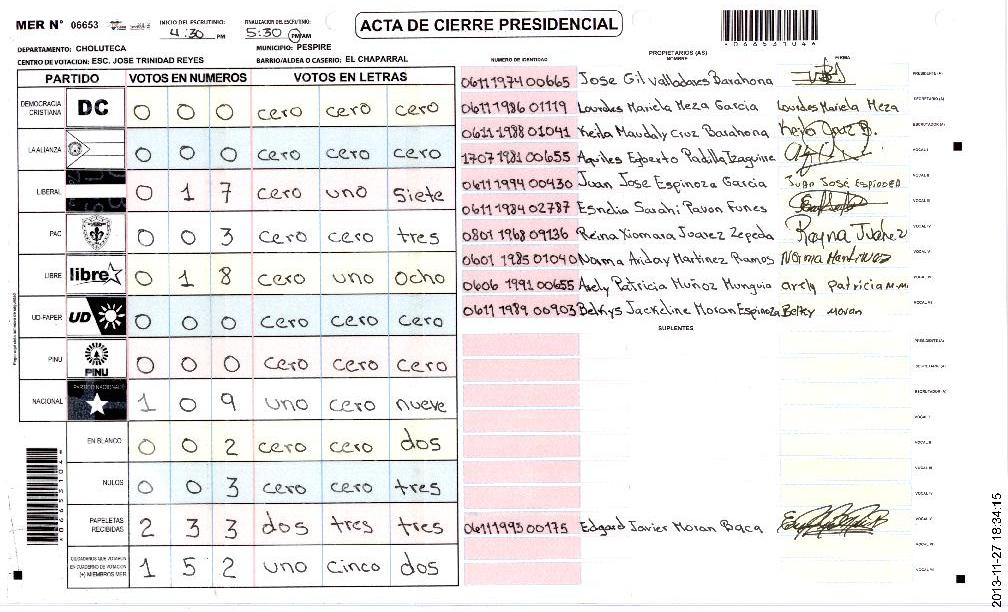 MER N° 06653
INICIO DEL ESCRUTINIO:
4:30 PM
FINALIZACION DEL ESCRUTINIO:
5:30 PM/AM
ACTA DE CIERRE PRESIDENCIAL
DEPARTAMENTO: CHOLUTECA
MUNICIPIO: PESPIRE
CENTRO DE VOTACION: ESC. JOSE TRINIDAD REYES
BARRIO/ALDEA O CASERIO: EL CHAPARRAL
PARTIDO VOTOS EN NUMEROS VOTOS EN LETRAS
DEMOCRACIA CRISTIANA DC 0 0 0 cero cero cero
LA ALIANZA 0 0 0 cero cero cero
LIBERAL 0 1 7 cero uno siete
PAC 0 0 3 cero cero tres
LIBRE libre 0 1 8 cero uno ocho
UD-FAPER UD 0 0 0 cero cero cero
PINU PINU 0 0 0 cero cero cero
NACIONAL PARTIDO NACIONAL 1 0 9 uno cero nueve
EN BLANCO 0 0 2 cero cero dos
NULOS 0 0 3 cero cero tres
PAPELETAS RECIBIDAS 2 3 3 dos tres tres
CIUDADANOS QUE VOTARON EN CUADERNO DE VOTACION (+) MIEMBROS MER 1 5 2 uno cinco dos
NUMERO DE IDENTIDAD PROPIETARIOS (AS) FIRMA
0611 1974 00665 Jose Gil Valladares Barahona PRESIDENTE (A)
0611 1986 01119 Lourdes Mariela Meza Garcia Lourdes Mariela Meza SECRETARIO (A)
0611 1988 01041 Keila Maudaly Cruz Barahona ESCRUTADOR (A)
1707 1981 00655 Aquiles Egberto Padilla Izaguirre VOCAL I
0611 1994 00430 Juan Jose Espinoza Garcia Juan José Espinoza VOCAL II
0611 1984 02787 Esnelia Sarahi Pavon Funes VOCAL III
0801 1968 09136 Reina Xiomara Juarez Zepeda Reyna Juarez VOCAL IV
0601 1985 01040 Norma Ariday Martinez Ramos Norma Martinez VOCAL V
0606 1991 00655 Arely Patricia Muñoz Munguia arely Patricia M.M. VOCAL VI
0611 1989 00903 Belkys Jackeline Moran Espinoza Belky Moran VOCAL VII
SUPLENTES
PRESIDENTE (A)
SECRETARIO (A)
ESCRUTADOR (A)
VOCAL I
VOCAL II
VOCAL III
VOCAL IV
0611 1993 00175 Edgard Javier Moran Baca VOCAL V
VOCAL VI
VOCAL VII
2013-11-27 18:34:15